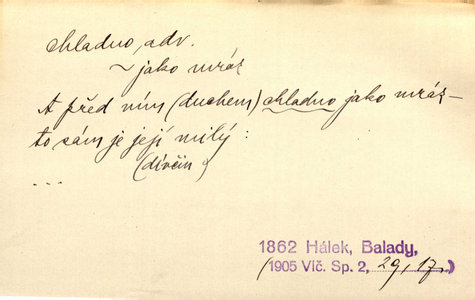 chladno, adv.
~ jako mráz
A před ním (duchem) chladno jako mráz –
to sám je její milý :
(dívčin)
...
1862 Hálek, Balady,
(1905 Vlč. Sp. 2, 29, 17.)